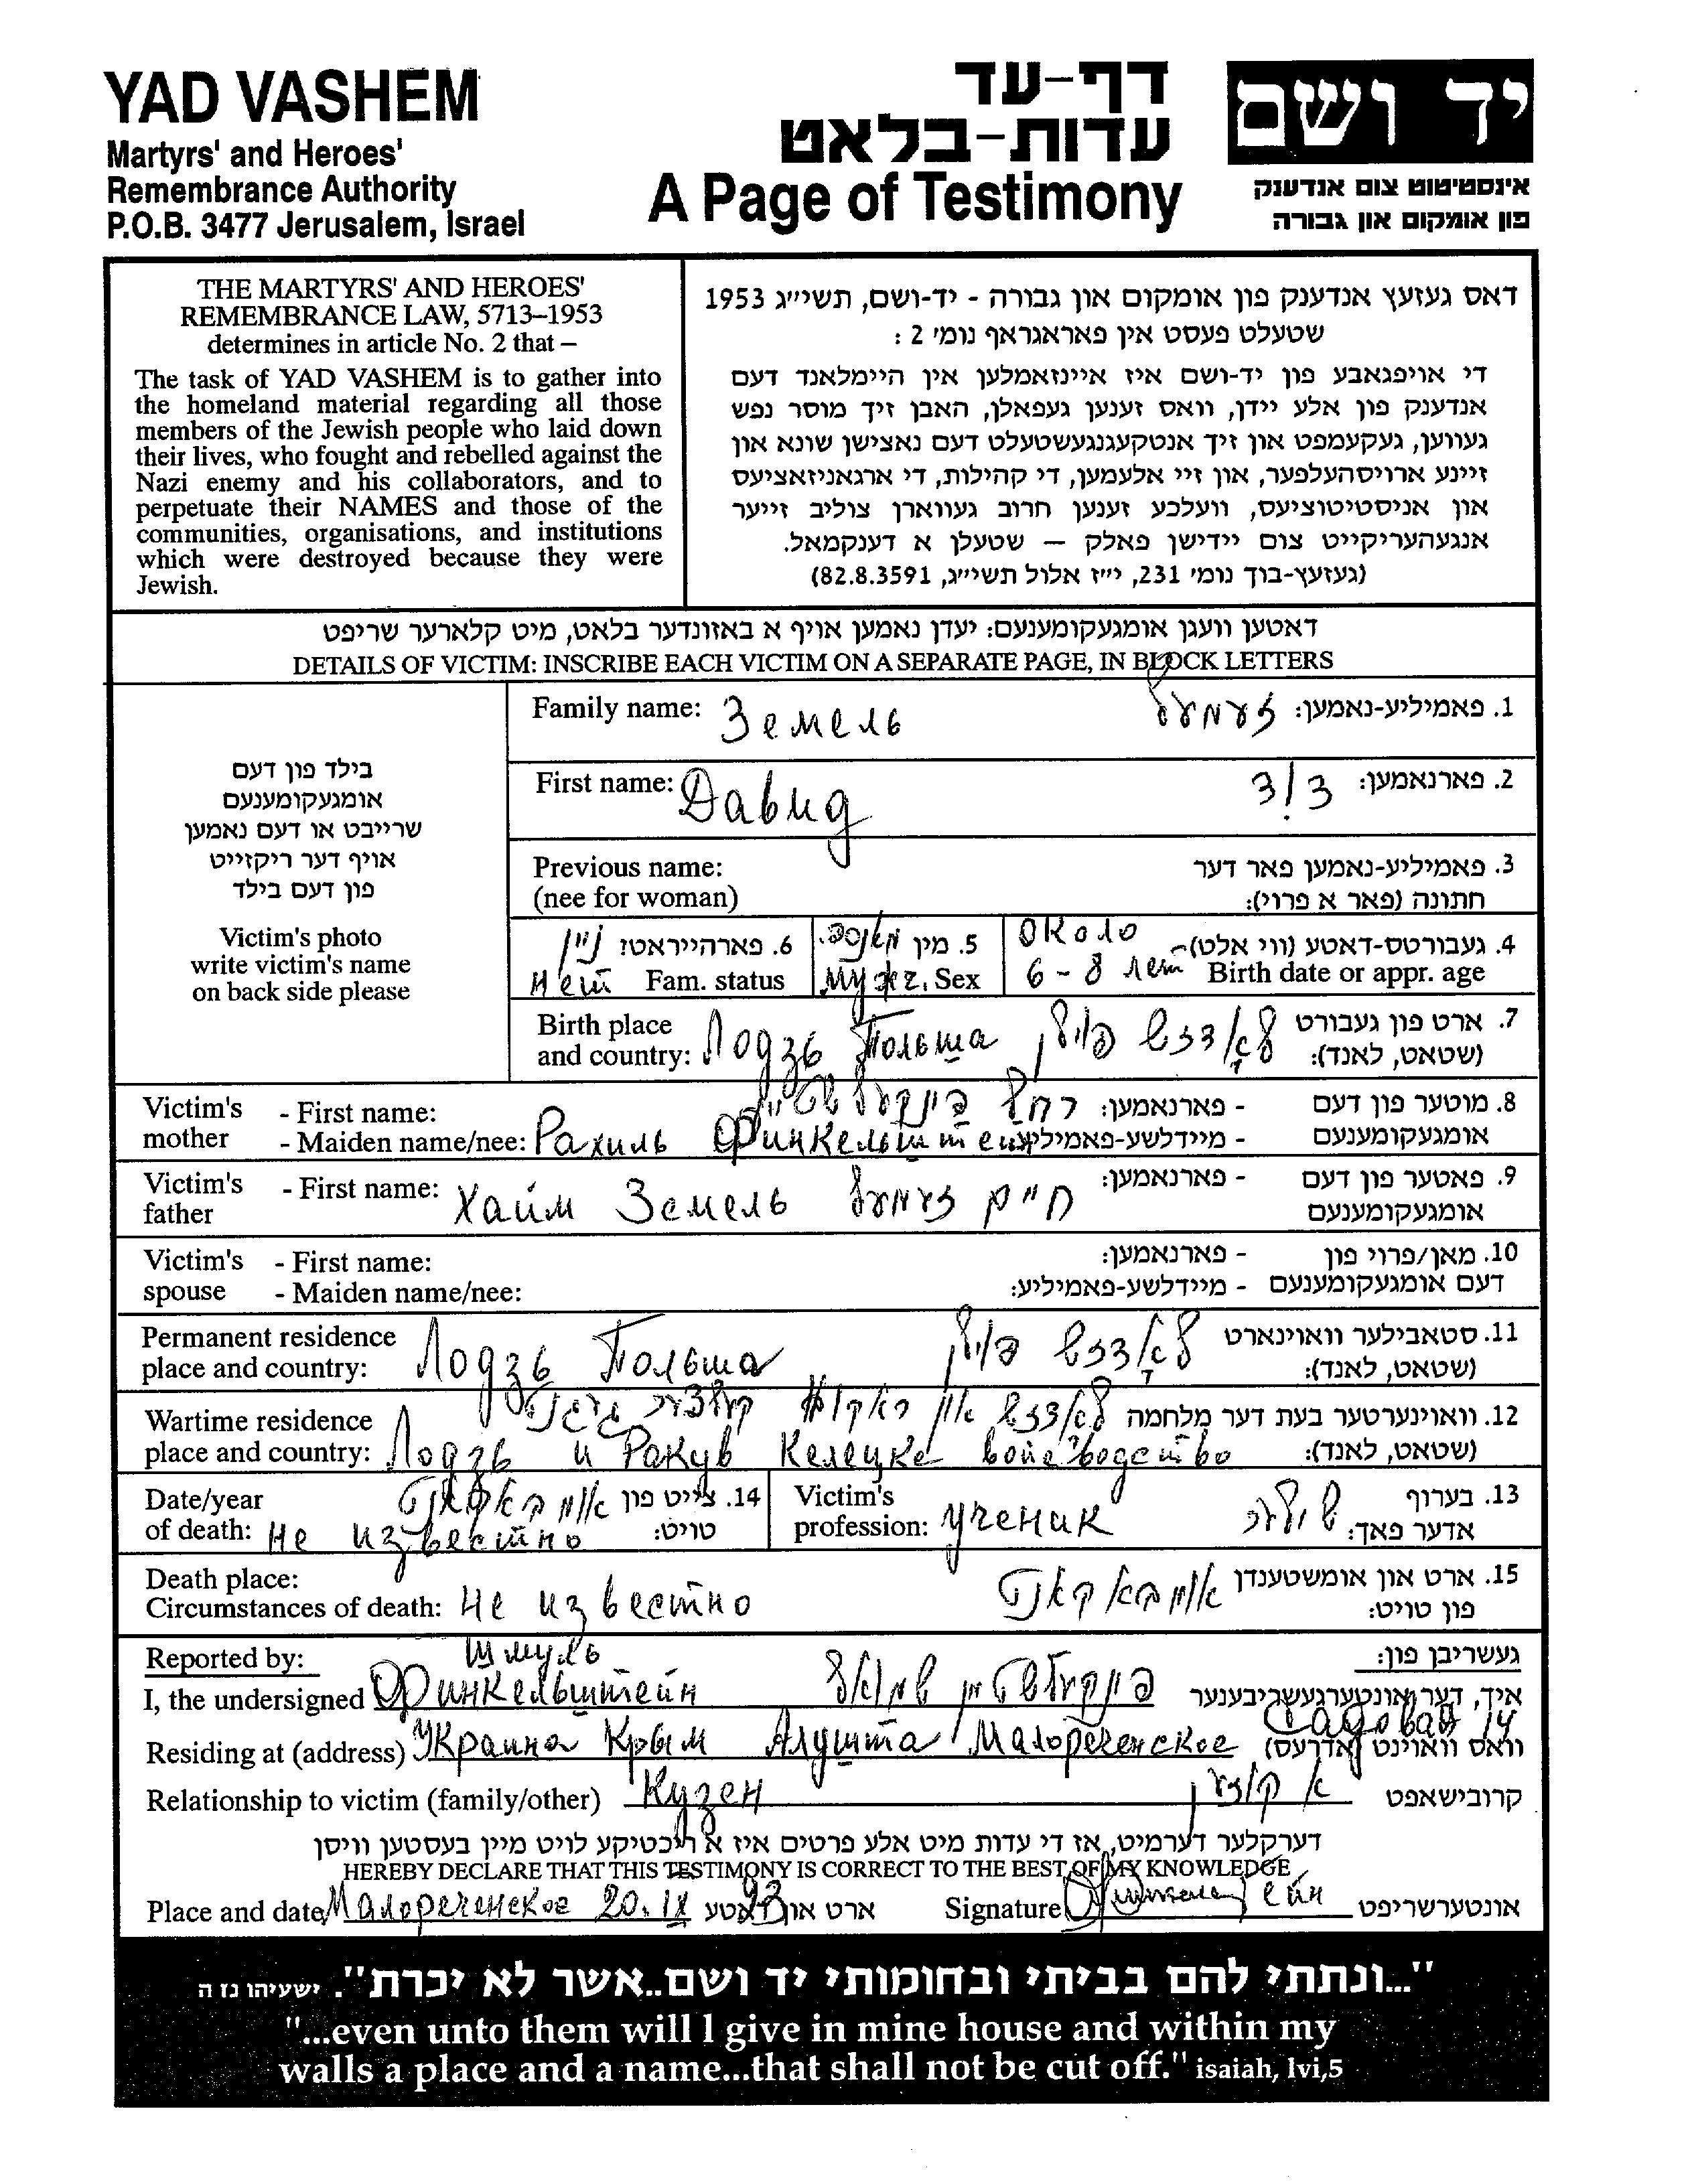 YAD VASHEM
Martyrs' and Heroes'
Remembrance Authority
P.O.B. 3477 Jerusalem, Israel
דף-עד
עדות-בלאט
A Page of Testimony
יד ושם
אינסטיטוט צום אנדענק
פון אומקום און גבורה
THE MARTYRS' AND HEROES'
REMEMBRANCE LAW, 5713–1953
determines in article No. 2 that –
The task of YAD VASHEM is to gather into
the homeland material regarding all those
members of the Jewish people who laid down
their lives, who fought and rebelled against the
Nazi enemy and his collaborators, and to
perpetuate their NAMES and those of the
communities, organisations, and institutions
which were destroyed because they were
Jewish.
דאס געזעץ אנדענק פון אומקום און גבורה - יד-ושם, תשי״ג 1953
שטעלט פעסט אין פאראגראף נומ׳ 2 :
די אויפגאבע פון יד-ושם איז איינזאמלען אין היימלאנד דעם
אנדענק פון אלע יידן, וואס זענען געפאלן, האבן זיך מוסר נפש
געווען, געקעמפט און זיך אנטקעגנגעשטעלט דעם נאצישן שונא און
זיינע ארויסהעלפער, און זיי אלעמען, די קהילות, די ארגאניזאציעס
און אניסטיטוציעס, וועלכע זענען חרוב געווארן צוליב זייער
אנגעהעריקייט צום יידישן פאלק — שטעלן א דענקמאל.
(געזעץ-בוך נומ׳ 231, י״ז אלול תשי״ג, 82.8.3591)
דאטען וועגן אומגעקומענעם: יעדן נאמען אויף א באזונדער בלאט, מיט קלארער שריפט
DETAILS OF VICTIM: INSCRIBE EACH VICTIM ON A SEPARATE PAGE, IN BLOCK LETTERS
בילד פון דעם
אומגעקומענעם
שרייבט או דעם נאמען
אויף דער ריקזייט
פון דעם בילד
Victim's photo
write victim's name
on back side please
Family name: Земель זעמעל 1. פאמיליע-נאמען:
First name: Давид דוד 2. פארנאמען:
Previous name: 3. פאמיליע-נאמען פאר דער
(nee for woman) חתונה (פאר א פרוי):
ניין 6. פארהייראטז 5. מין около 4. געבורטס-דאטע (ווי אלט)-
Нет Fam. status Муж. Sex 6 - 8 лет Birth date or appr. age
Birth place 7. ארט פון געבורט
and country: Лодзь Польша לאדזש פוילן (שטאט, לאנד):
Victim's - First name: רחל פינקעלשטיין - פארנאמען: 8. מוטער פון דעם
mother - Maiden name/nee: Рахиль Финкельштейн - מיידלשע-פאמיליע אומגעקומענעם
Victim's - First name: Хаим Земель חיים זעמעל - פארנאמען: 9. פאטער פון דעם
father אומגעקומענעם
Victim's - First name: - פארנאמען: 10. מאן/פרוי פון
spouse - Maiden name/nee: - מיידלשע-פאמיליע: דעם אומגעקומענעם
Permanent residence 11. סטאבילער וואוינארט
place and country: Лодзь Польша לאדזש פוילן (שטאט, לאנד):
Wartime residence לאדזש און ראקוו 12. וואוינערטער בעת דער מלחמה
place and country: Лодзь и Ракув Келецке воеводство (שטאט, לאנד):
Date/year אומבאקאנט 14. צייט פון Victim's 13. בערוף
of death: Не известно טויט: profession: ученик שילער אדער פאך:
Death place: אומבאקאנט 15. ארט און אומשטענדן
Circumstances of death: Не известно פון טויט:
Reported by: Шмуль געשריבן פון:
I, the undersigned Финкельштейн פינקעלשטיין שמואל איך, דער אונטערגעשריבענער
Садовая 14
Residing at (address) Украина Крым Алушта Малореченское וואס וואוינט (אדרעס)
Relationship to victim (family/other) Кузен א קוזען קרובישאפט
דערקלער דערמיט, אז די עדות מיט אלע פרטים איז א ריכטיקע לויט מיין בעסטען וויסן
HEREBY DECLARE THAT THIS TESTIMONY IS CORRECT TO THE BEST OF MY KNOWLEDGE
Place and date Малореченское 20.IX 93 ארט און דאטע Signature Финкельштейн אונטערשריפט
"...ונתתי להם בביתי ובחומותי יד ושם..אשר לא יכרת". ישעיהו נז ה
"...even unto them will I give in mine house and within my
walls a place and a name...that shall not be cut off." isaiah, lvi,5